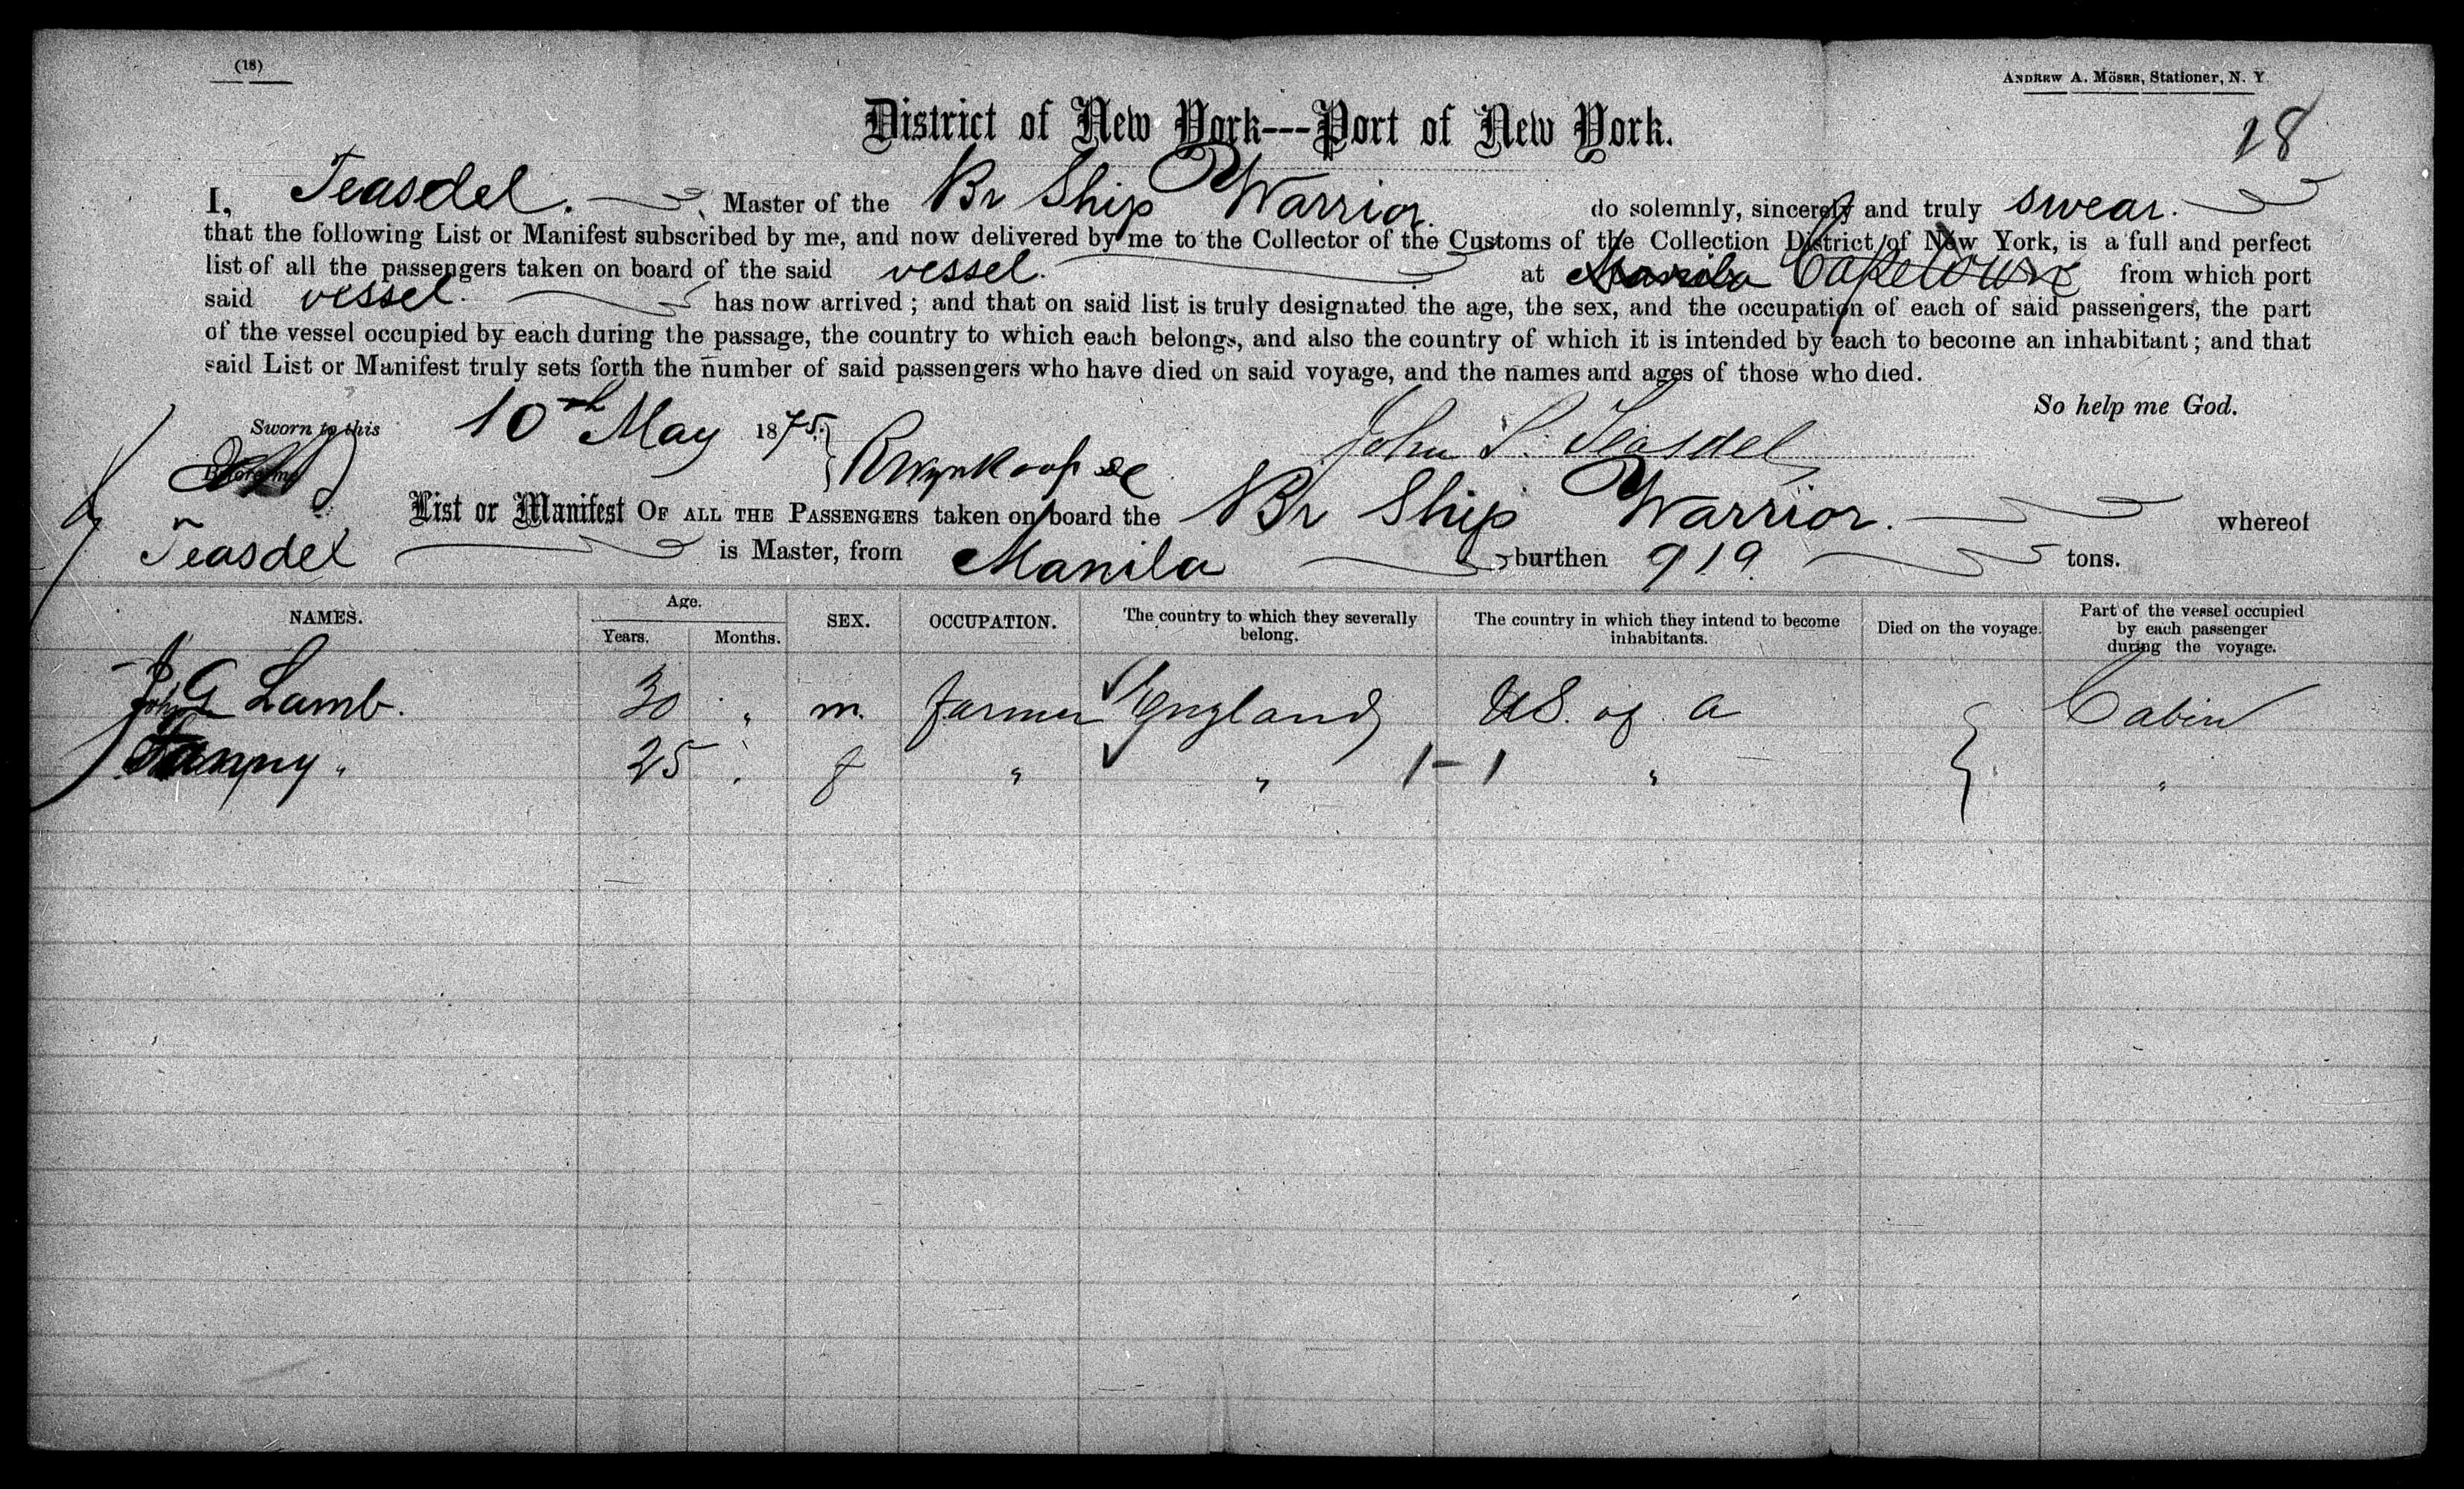 (18)
ANDREW A. MÖSER, Stationer, N. Y
District of New York---Port of New York.
18
I, Teasdel. Master of the Br Ship Warrior. do solemnly, sincerely and truly swear.
that the following List or Manifest subscribed by me, and now delivered by me to the Collector of the Customs of the Collection District of New York, is a full and perfect
list of all the passengers taken on board of the said vessel. at Manila Capetown from which port
said vessel. has now arrived; and that on said list is truly designated the age, the sex, and the occupation of each of said passengers, the part
of the vessel occupied by each during the passage, the country to which each belongs, and also the country of which it is intended by each to become an inhabitant; and that
said List or Manifest truly sets forth the number of said passengers who have died on said voyage, and the names and ages of those who died.
So help me God.
Sworn to this 10th May 1875. John S. Teasdel
Before me
List or Manifest OF ALL THE PASSENGERS taken on board the Br Ship Warrior. whereof
Teasdel is Master, from Manila burthen 919 tons.
NAMES. Age. Years. Months. SEX. OCCUPATION. The country to which they severally belong. The country in which they intend to become inhabitants. Died on the voyage. Part of the vessel occupied by each passenger during the voyage.
G Lamb. 30 " m. farmer England US. of a Cabin
Fanny " 25 " f " " 1-1 " "